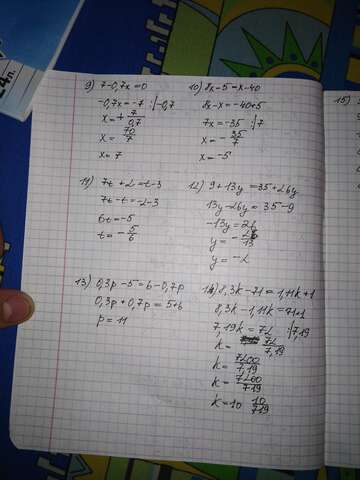 9) 7-0,7x=0
-0,7x=-7 :|-0,7
x=+ 7/0,7
x= 70/7
x=7
10) 8x-5=x-40
8x-x=-40+5
7x=-35 :|7
x=- 35/7
x=-5
11) 7t+2=t-3
7t-t=-2-3
6t=-5
t=- 5/6
12) 9+13y=35+26y
13y-26y=35-9
-13y=26
y=- 26/13
y=-2
13) 0,3p-5=6-0,7p
0,3p+0,7p=5+6
p=11
14) 8,3k-71=1,11k+1
8,3k-1,11k=71+1
7,19k=72 :|7,19
k= 72/7,19
k= 7200/7,19
k= 7200/719
k=10 10/719
15)